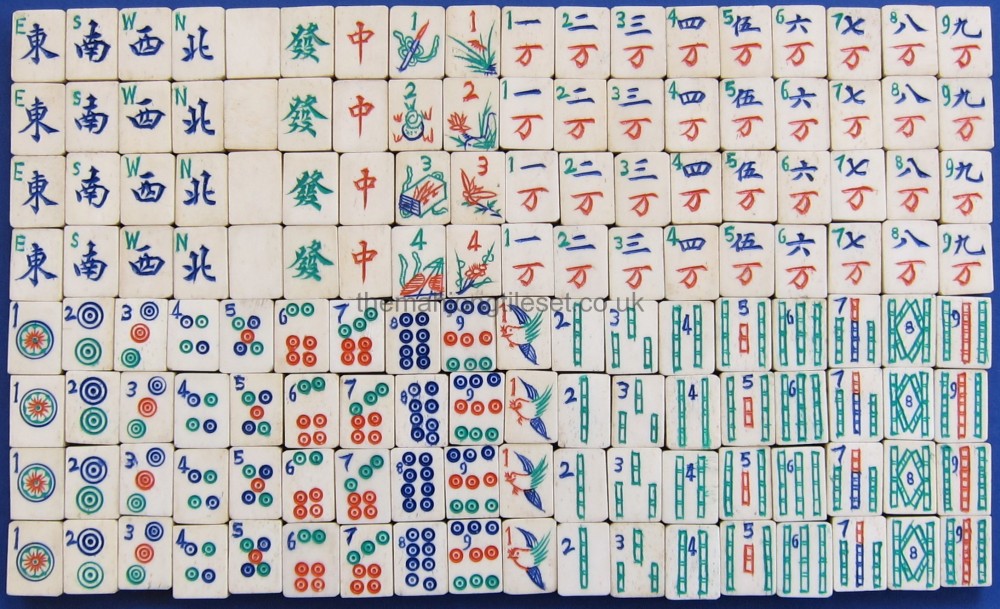 E東 S南 W西 N北 發 中 1 1 1一万 2二万 3三万 4四万 5伍万 6六万 7七万 8八万 9九万
E東 S南 W西 N北 發 中 2 2 1一万 2二万 3三万 4四万 5伍万 6六万 7七万 8八万 9九万
E東 S南 W西 N北 發 中 3 3 1一万 2二万 3三万 4四万 5伍万 6六万 7七万 8八万 9九万
E東 S南 W西 N北 發 中 4 4 1一万 2二万 3三万 4四万 5伍万 6六万 7七万 8八万 9九万
themahjongtileset.co.uk
1 2 3 4 5 6 7 8 9 1 2 3 4 5 6 7 8 9
1 2 3 4 5 6 7 8 9 1 2 3 4 5 6 7 8 9
1 2 3 4 5 6 7 8 9 1 2 3 4 5 6 7 8 9
1 2 3 4 5 6 7 8 9 1 2 3 4 5 6 7 8 9